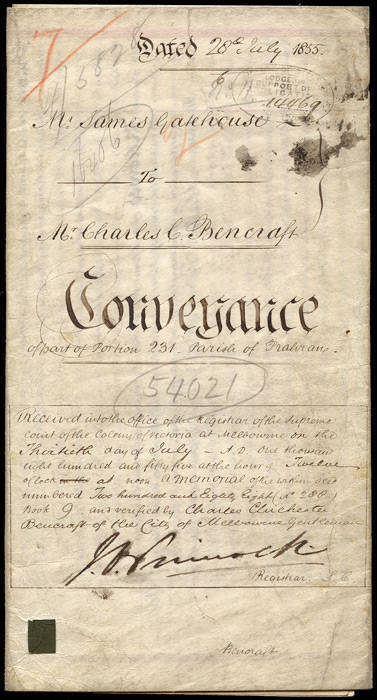 Dated 28th July 1855.
7
5872
6
LODGED
SUPPORT OF
14469
Mr James Gatehouse
16486
To
Mr Charles C. Bencraft
Conveyance
of part of Portion 231 Parish of Prahran.
54021
Received into the office of the Registrar of the Supreme
Court of the Colony of Victoria at Melbourne on the
Thirtieth day of July - A.D. One thousand
eight hundred and fifty five at the hour of Twelve
o'clock at noon a Memorial of the within deed
numbered Two hundred and Eighty Eight (No 288)
Book 9 and verified by Charles Chichester
Bencraft of the City of Melbourne Gentleman
Registrar S.C
Bencraft